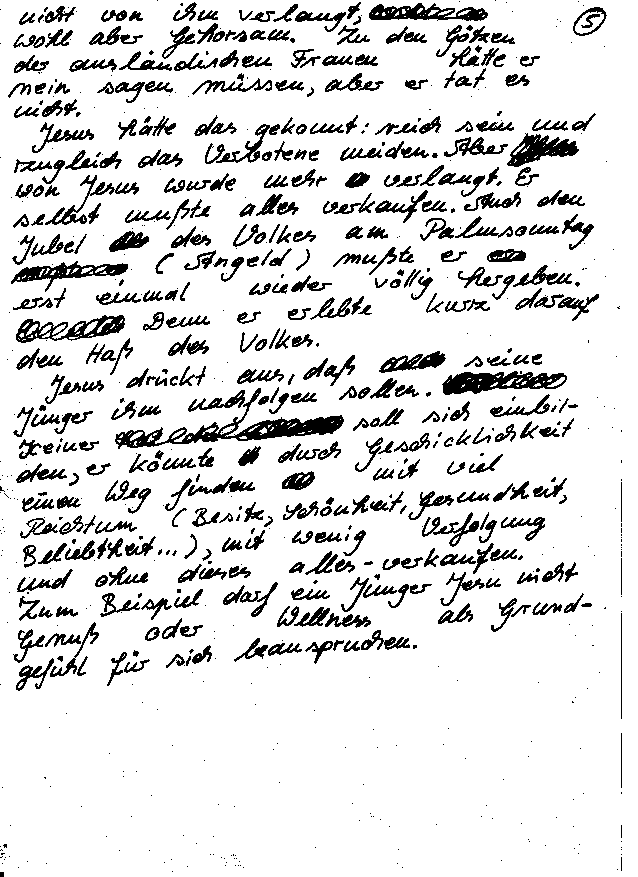 nicht von ihm verlangt,
wohl aber Gehorsam. Zu den Götzen
der ausländischen Frauen hätte er
nein sagen müssen, aber er tat es
nicht.
Jesus hätte das gekonnt: reich sein und
zugleich das Verbotene meiden. Aber
von Jesus wurde mehr verlangt. Er
selbst mußte alles verkaufen. Auch den
Jubel des Volkes am Palmsonntag
(Angeld) mußte er
erst einmal wieder völlig hergeben.
Denn er erlebte kurz darauf
den Haß des Volkes.
Jesus drückt aus, daß seine
Jünger ihm nachfolgen sollen.
Keiner soll sich einbil-
den, er könnte durch Geschicklichkeit
einen Weg finden mit viel
Reichtum (Besitz, Schönheit, Gesundheit,
Beliebtheit...), mit wenig Verfolgung
und ohne dieses alles-verkaufen.
Zum Beispiel darf ein Jünger Jesu nicht
Genuß oder Wellness als Grund-
gefühl für sich beanspruchen.
5